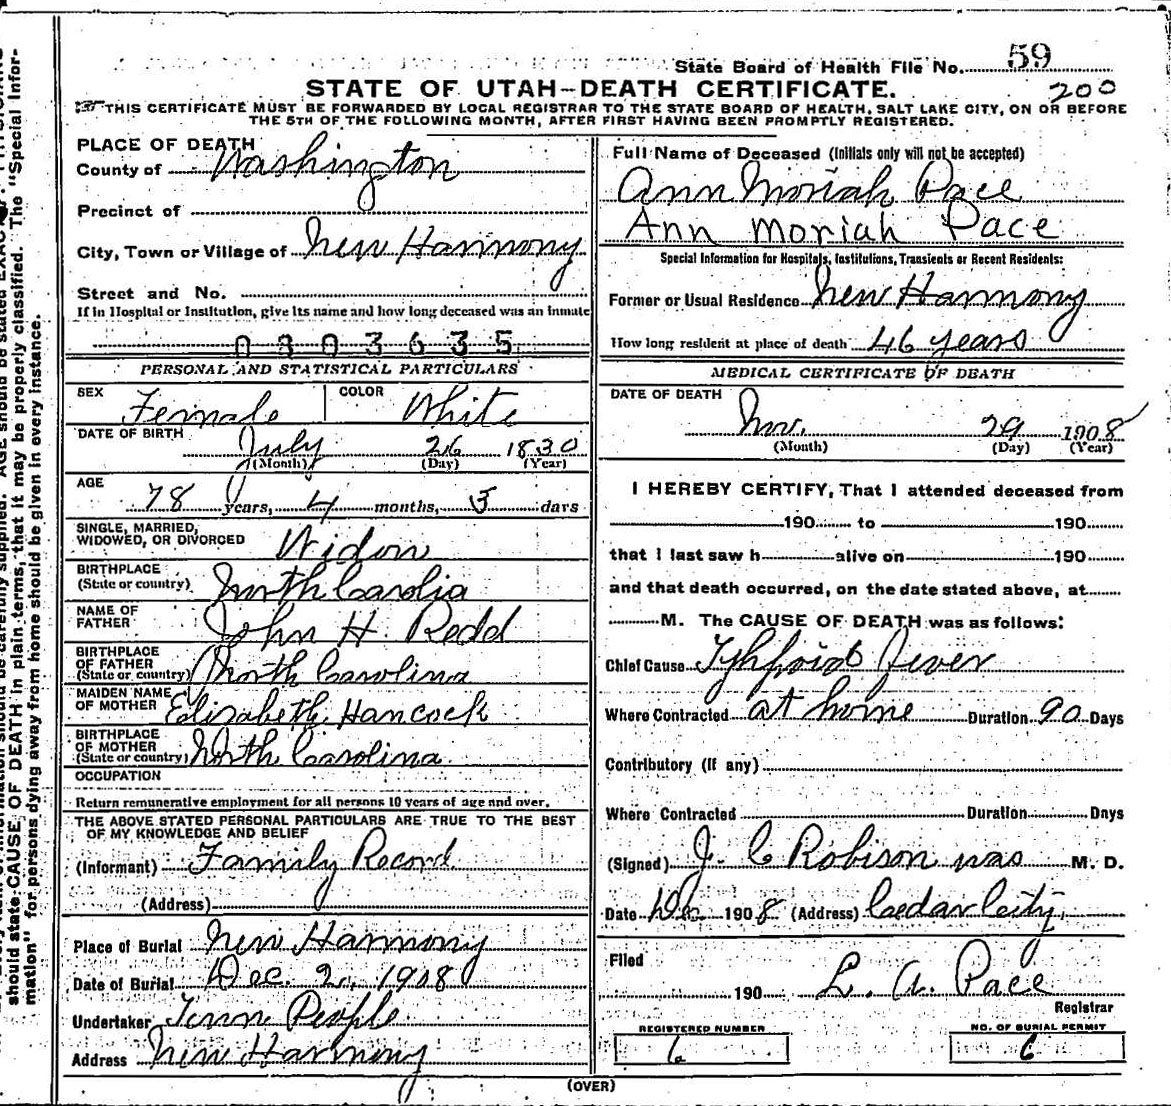 State Board of Health File No. 59
STATE OF UTAH—DEATH CERTIFICATE. 200
THIS CERTIFICATE MUST BE FORWARDED BY LOCAL REGISTRAR TO THE STATE BOARD OF HEALTH, SALT LAKE CITY, ON OR BEFORE
THE 5TH OF THE FOLLOWING MONTH, AFTER FIRST HAVING BEEN PROMPTLY REGISTERED.
PLACE OF DEATH
County of Washington
Precinct of
City, Town or Village of New Harmony
Street and No.
If in Hospital or Institution, give its name and how long deceased was an inmate
0803635
PERSONAL AND STATISTICAL PARTICULARS
SEX Female COLOR White
DATE OF BIRTH July 26 1830
(Month) (Day) (Year)
AGE 78 years, 4 months, 3 days
SINGLE, MARRIED,
WIDOWED, OR DIVORCED Widow
BIRTHPLACE
(State or country) North Carolia
NAME OF
FATHER John H. Redd
BIRTHPLACE
OF FATHER
(State or country) North Carolina
MAIDEN NAME
OF MOTHER Elizabeth Hancock
BIRTHPLACE
OF MOTHER
(State or country) North Carolina
OCCUPATION
Return remunerative employment for all persons 10 years of age and over.
THE ABOVE STATED PERSONAL PARTICULARS ARE TRUE TO THE BEST
OF MY KNOWLEDGE AND BELIEF
(Informant) Family Record
(Address)
Place of Burial New Harmony
Date of Burial Dec. 2, 1908
Undertaker Town People
Address New Harmony
Full Name of Deceased (Initials only will not be accepted)
Ann Moriah Pace
Ann Moriah Pace
Special Information for Hospitals, Institutions, Transients or Recent Residents:
Former or Usual Residence New Harmony
How long resident at place of death 46 years
MEDICAL CERTIFICATE OF DEATH
DATE OF DEATH
Nov. 29 1908
(Month) (Day) (Year)
I HEREBY CERTIFY, That I attended deceased from
190 to 190
that I last saw h alive on 190
and that death occurred, on the date stated above, at
M. The CAUSE OF DEATH was as follows:
Chief Cause Tyhfoid Fever
Where Contracted at home Duration 90 Days
Contributory (If any)
Where Contracted Duration Days
(Signed) J. C Robison was M. D.
Date Dec. 1908 (Address) Cedar City,
Filed
190 L. A. Pace
Registrar
REGISTERED NUMBER
6
NO. OF BURIAL PERMIT
6
(OVER)
AGE should be stated
The "Special Infor-
should state CAUSE OF DEATH in plain terms, that it may be properly classified.
mation" for persons dying away from home should be given in every instance.